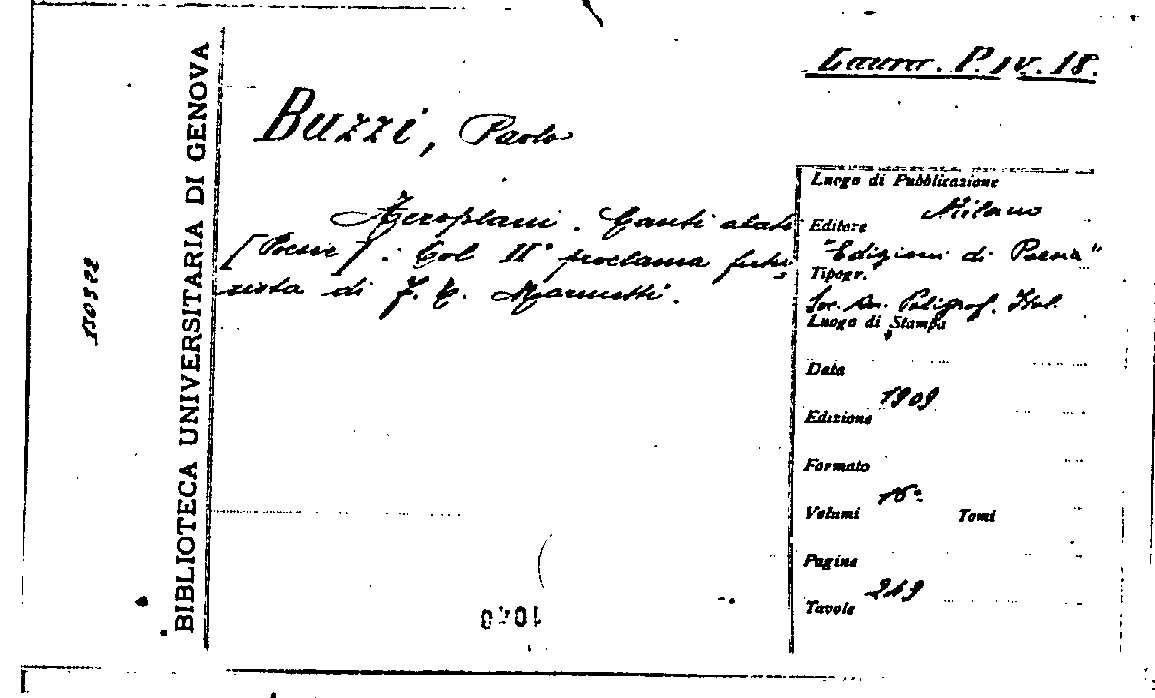 Laura. P. IV. 18.
BIBLIOTECA UNIVERSITARIA DI GENOVA
Buzzi, Paolo
Aeroplani. Canti alati
[Poesie]. Col II° proclama futu-
rista di F. T. Marinetti.
Luogo di Pubblicazione
Milano
Editore
"Edizioni di Poesia"
Tipogr.
Soc. An. Poligraf. Ital.
Luogo di Stampa
Data
1909
Edizione
Formato
16°
Volumi Tomi
Pagine
Tavole